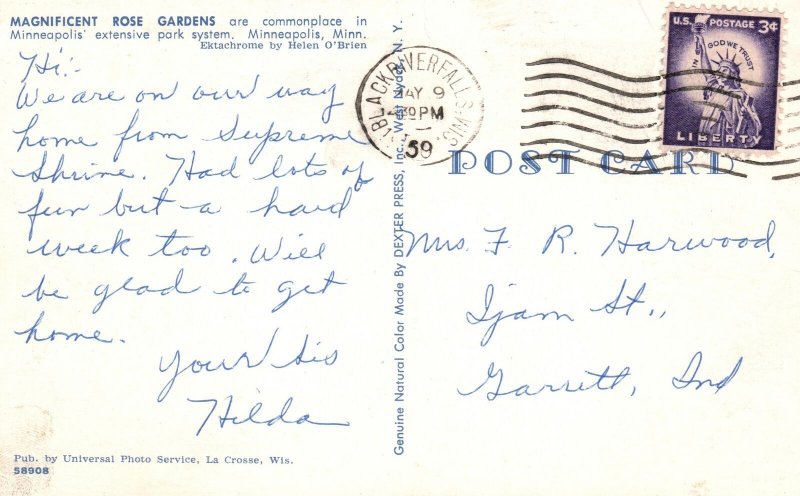 MAGNIFICENT ROSE GARDENS are commonplace in
Minneapolis' extensive park system. Minneapolis, Minn.
Ektachrome by Helen O'Brien
Hi:-
We are on our way
home from Supreme
Shrine. Had lots of
fun but a hard
week too. Will
be glad to get
home.
Your Sis
Hilda
Pub. by Universal Photo Service, La Crosse, Wis.
58908
Genuine Natural Color Made By DEXTER PRESS, Inc., West Nyack, N. Y.
BLACK RIVER FALLS WIS.
MAY 9
PM
59
U.S. POSTAGE 3¢
IN GOD WE TRUST
LIBERTY
POST CARD
Mrs. F. R. Harwood,
Ijam St.,
Garrett, Ind